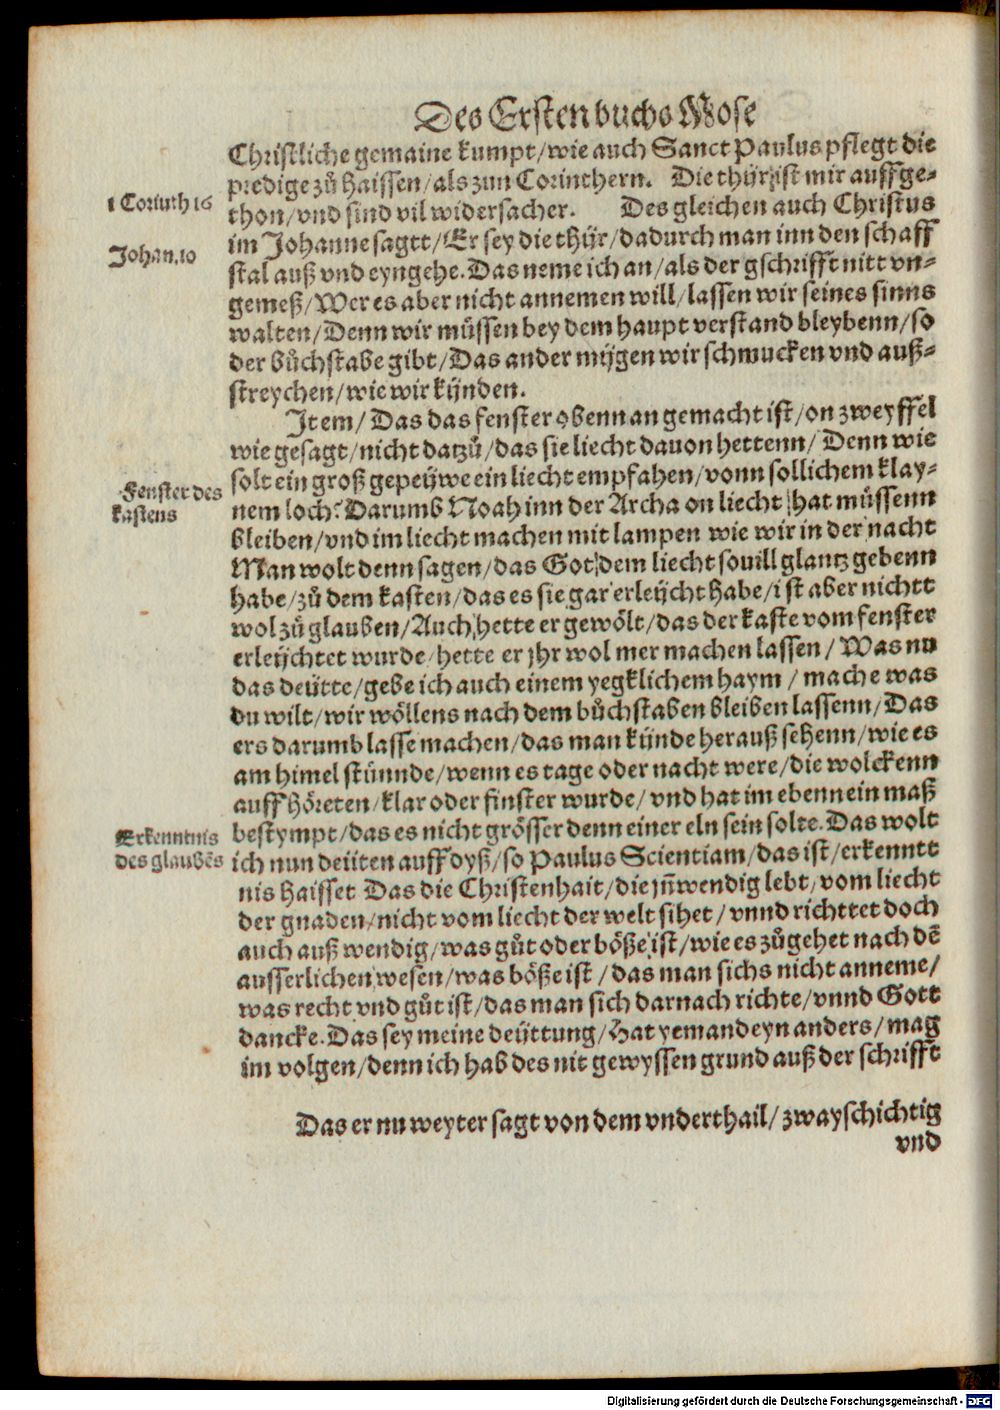 Des Ersten buchs Mose
Christliche gemaine kumpt/wie auch Sanct Paulus pflegt die
predige zů haissen/als zun Corinthern. Die thür ist mir auffge-
1 Corinth 16
thon/vnd sind vil widersacher. Des gleichen auch Christus
Johan.10
im Johanne sagtt/Er sey die thijr/dadurch man inn den schaff
stal auß vnd eyngehe. Das neme ich an/als der gschrifft nitt vn-
gemeß/Wer es aber nicht annemen will/lassen wir seines sinns
walten/Denn wir müssen bey dem haupt verstand bleybenn/so
der bůchstabe gibt/Das ander mijgen wir schmucken vnd auß-
streychen/wie wir kijnden.
Item/Das das fenster obenn an gemacht ist/on zweyffel
wie gesagt/nicht datzů/das sie liecht dauon hettenn/Denn wie
solt ein groß gepeijwe ein liecht empfahen/vonn sollichem klay-
Fenster des
kastens
nem loch? Darumb Noah inn der Archa on liecht hat müssenn
bleiben/vnd im liecht machen mit lampen wie wir in der nacht
Man wolt denn sagen/das Got dem liecht souill glantz gebenn
habe/zů dem kasten/das es sie gar erleijcht habe/ist aber nichtt
wol zů glauben/Auch hette er gewölt/das der kaste vom fenster
erleijchtet wurde/hette er jhr wol mer machen lassen/Was nu
das deütte/gebe ich auch einem yegklichem haym/mache was
du wilt/wir wöllens nach dem bůchstaben bleiben lassenn/Das
ers darumb lasse machen/das man kijnde herauß sehenn/wie es
am himel stünnde/wenn es tage oder nacht were/die wolckenn
auff höreten/klar oder finster wurde/vnd hat im ebenn ein maß
Erkenntnis
des glaubẽs
bestympt/das es nicht grösser denn einer eln sein solte. Das wolt
ich nun deüten auff dyß/so Paulus Scientiam/das ist/erkenntt
nis haisset Das die Christenhait/die jñwendig lebt/vom liecht
der gnaden/nicht vom liecht der welt sihet/vnnd richttet doch
auch auß wendig/was gůt oder böße ist/wie es zůgehet nach dẽ
ausserlichen wesen/was böße ist/das man sichs nicht anneme/
was recht vnd gůt ist/das man sich darnach richte/vnnd Gott
dancke. Das sey meine deüttung/Hat yemand eyn anders/mag
im volgen/denn ich hab des nit gewyssen grund auß der schrifft
Das er nu weyter sagt von dem vnderthail/zwayschichtig
vnd
Digitalisierung gefördert durch die Deutsche Forschungsgemeinschaft - DFG